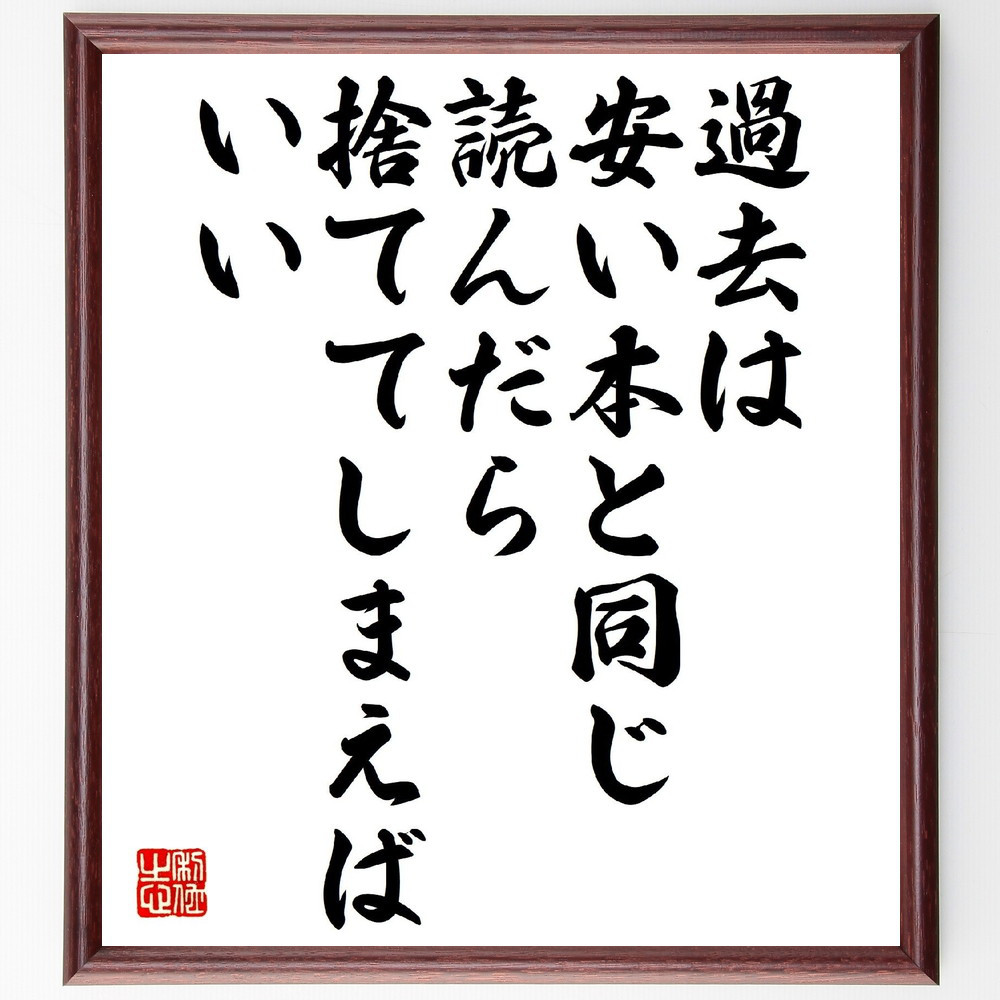 過去は
安い本と同じ
読んだら
捨ててしまえば
いい